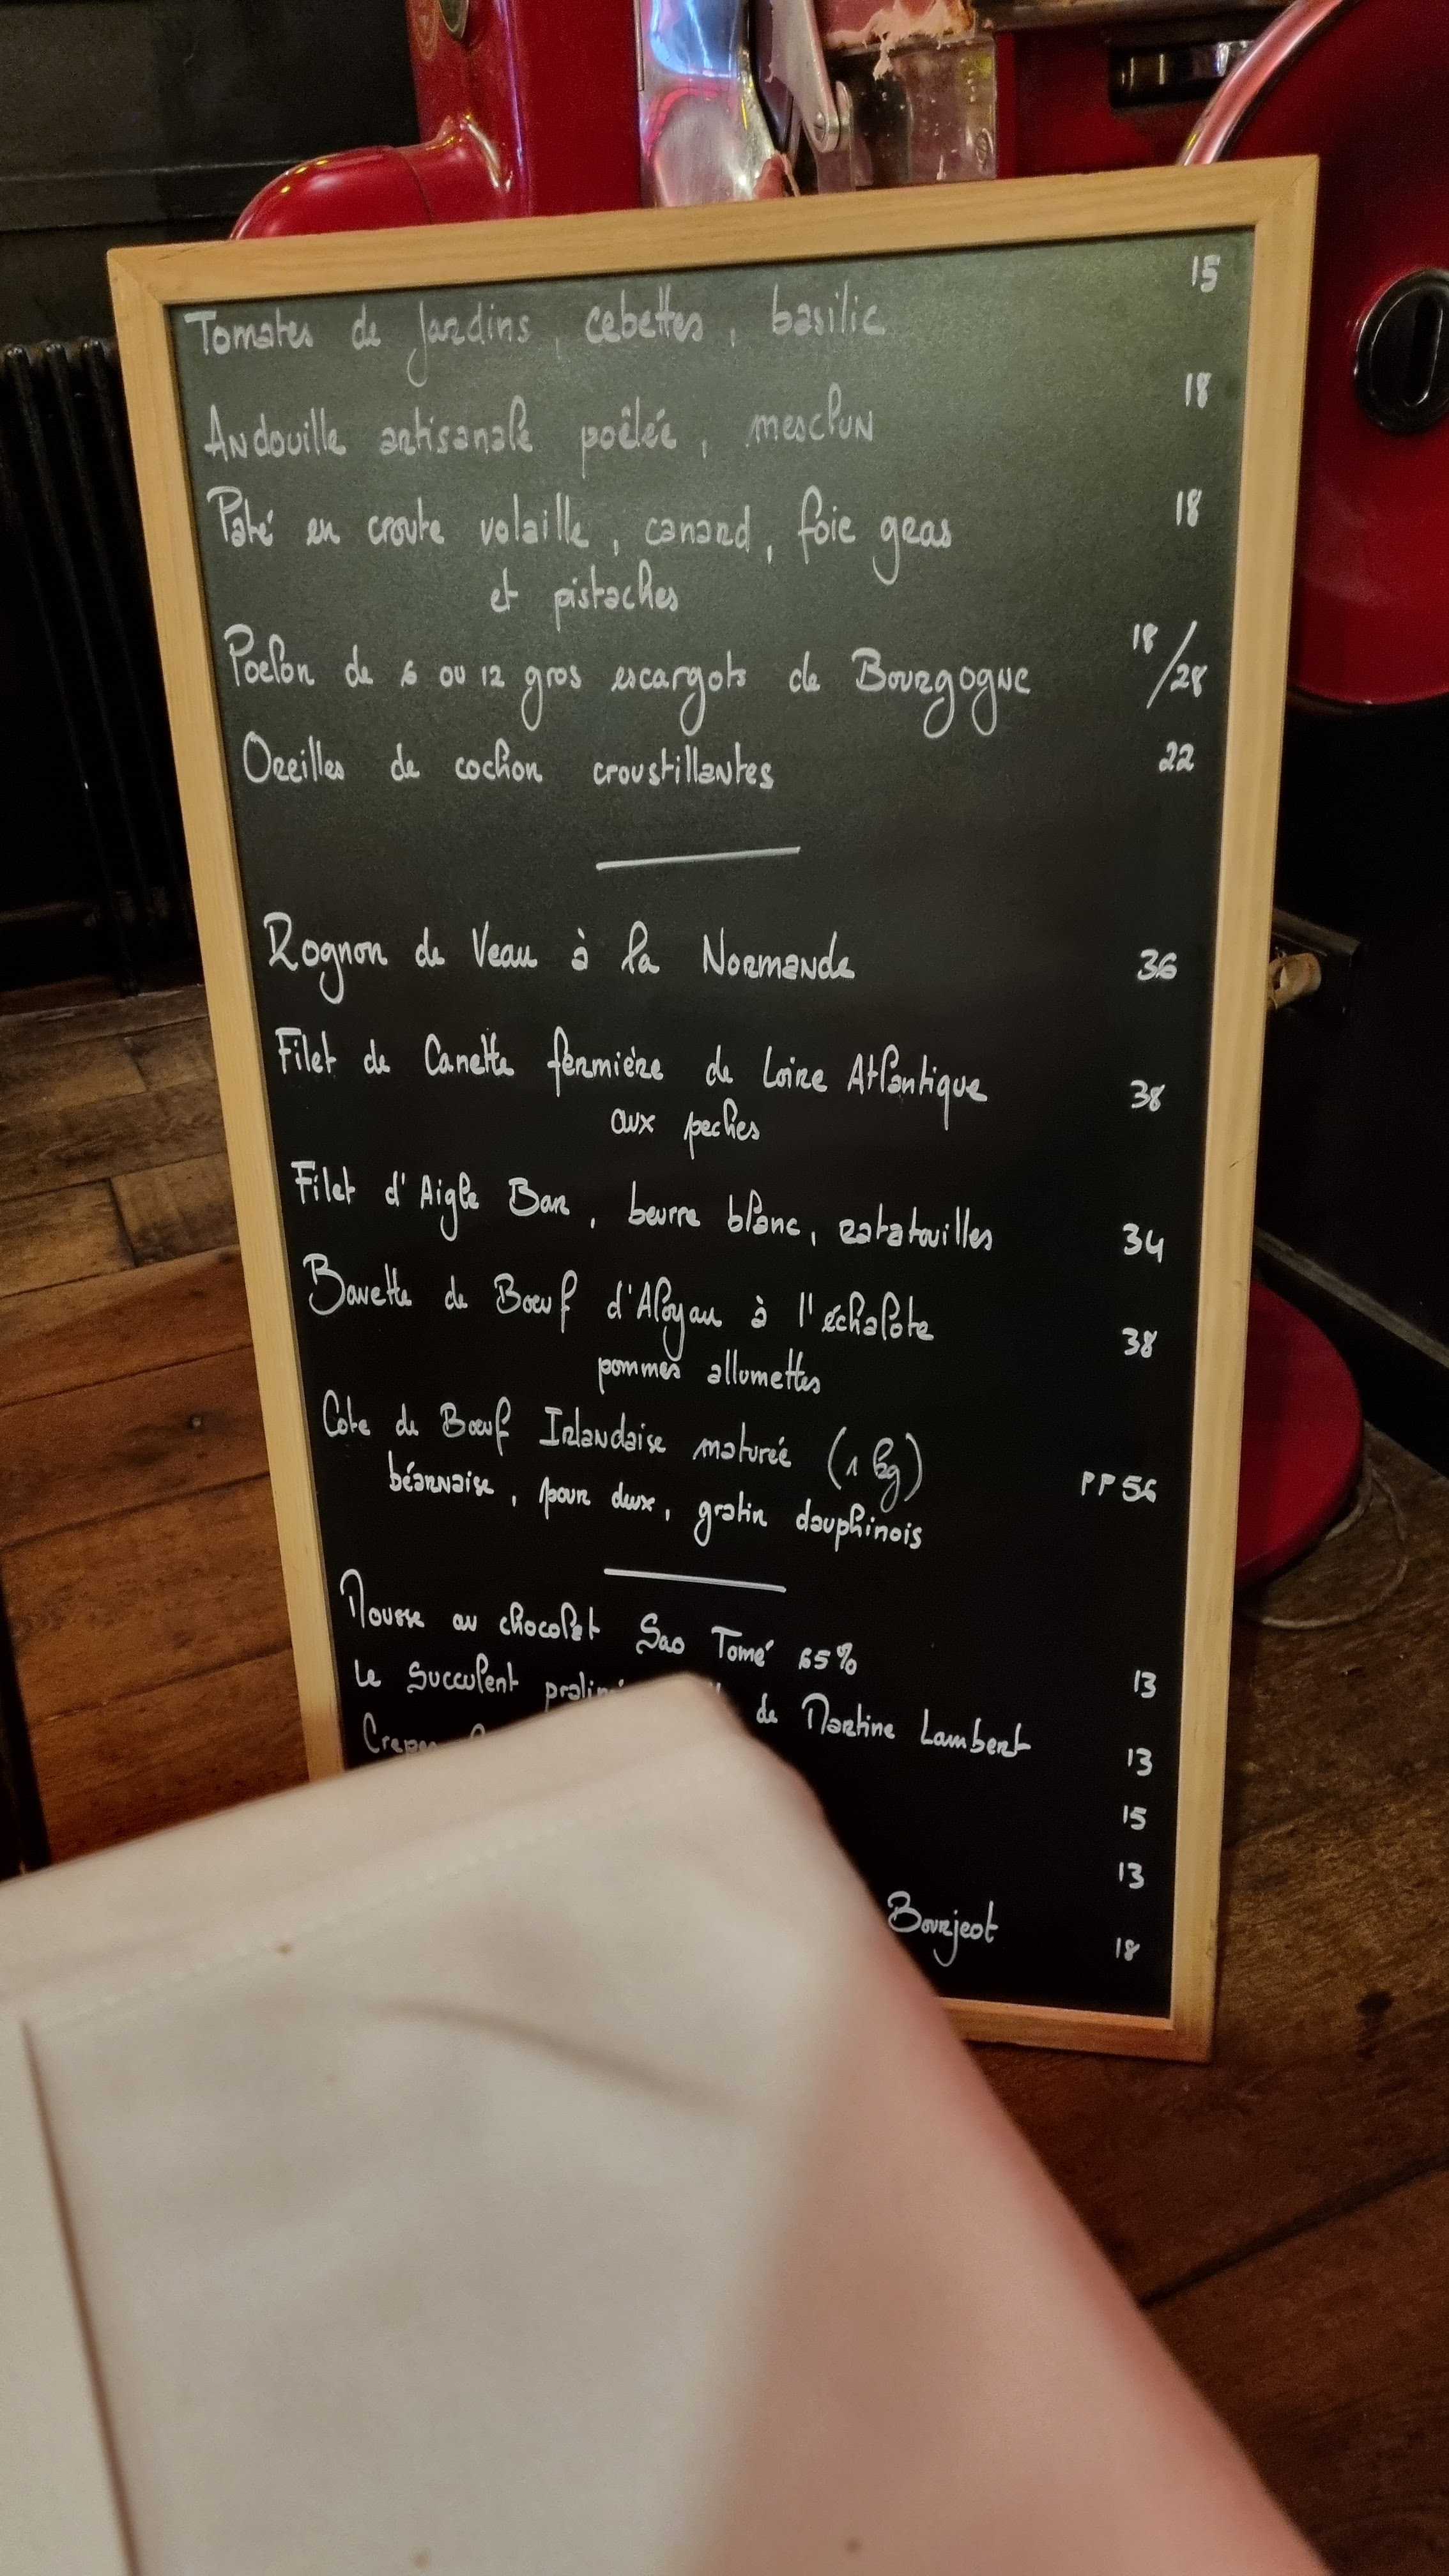 Tomates de Jardins, cebettes, basilic 15
Andouille artisanale poêlée, mesclun 18
Paté en croute volaille, canard, foie gras 18
et pistaches
Poelon de 6 ou 12 gros escargots de Bourgogne 18/28
Oreilles de cochon croustillantes 22
Rognon de Veau à la Normande 36
Filet de Canette fermière de Loire Atlantique 38
aux peches
Filet d'Aigle Bar, beurre blanc, ratatouilles 34
Bavette de Boeuf d'Aloyau à l'échalote 38
pommes allumettes
Cote de Boeuf Irlandaise maturée (1 kg)
béarnaise, pour deux, gratin dauphinois PP 56
Mousse au chocolat Sao Tomé 65% 13
Le Succulent de Martine Lambert 13
15
13
Bourjeot 18